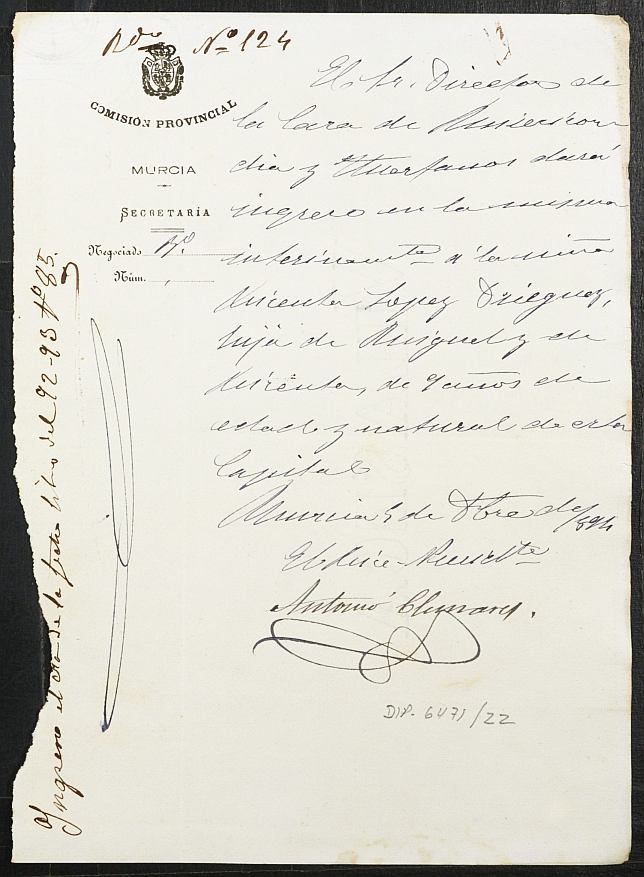 Rdo Nº 124
COMISIÓN PROVINCIAL
MURCIA
SECRETARÍA
Negociado Bº.
Núm.
El Sr. Director de
la Casa de Misericor
dia y Huerfanos dará
ingreso en la misma
interinamte á la niña
Vicenta Lopez
hija de Miguel y de
Vicenta, de 9 años de
edad y natural de esta
Capital
Murcia 5 de Obre de 1894
El Vice Presidte
Antonio
Ingreso el dia de la fecha libro del 92-93 fº 85.
DIP. 6471/22